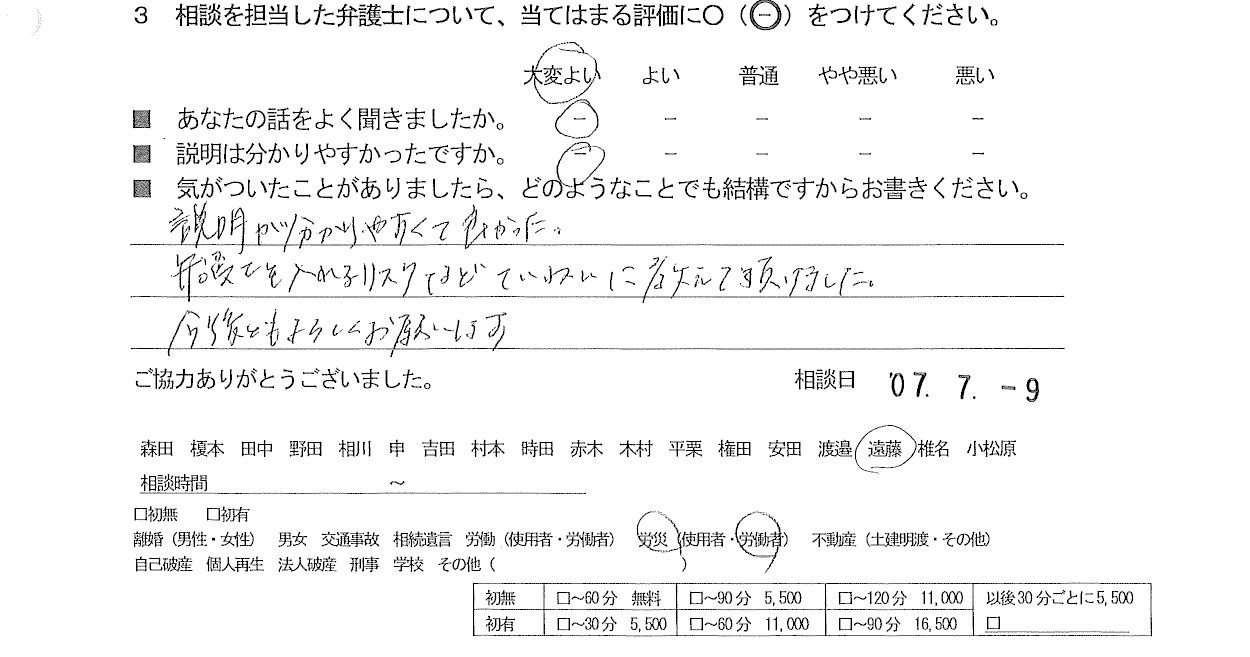 3 相談を担当した弁護士について、当てはまる評価に○（⊖）をつけてください。
大変よい よい 普通 やや悪い 悪い
■ あなたの話をよく聞きましたか。 － － － － －
■ 説明は分かりやすかったですか。 － － － － －
■ 気がついたことがありましたら、どのようなことでも結構ですからお書きください。
説明が分かりやすくて良かった。
弁護士を入れるリスクなどていねいに教えて頂けました。
今後ともよろしくお願いします
ご協力ありがとうございました。 相談日 '07. 7. -9
森田 榎本 田中 野田 相川 申 吉田 村本 時田 赤木 木村 平栗 権田 安田 渡邉 遠藤 椎名 小松原
相談時間 ～
□初無 □初有
離婚（男性・女性） 男女 交通事故 相続遺言 労働（使用者・労働者） 労災（使用者・労働者） 不動産（土建明渡・その他）
自己破産 個人再生 法人破産 刑事 学校 その他（ ）
初無 □～60分 無料 □～90分 5,500 □～120分 11,000 以後30分ごとに5,500
初有 □～30分 5,500 □～60分 11,000 □～90分 16,500 □